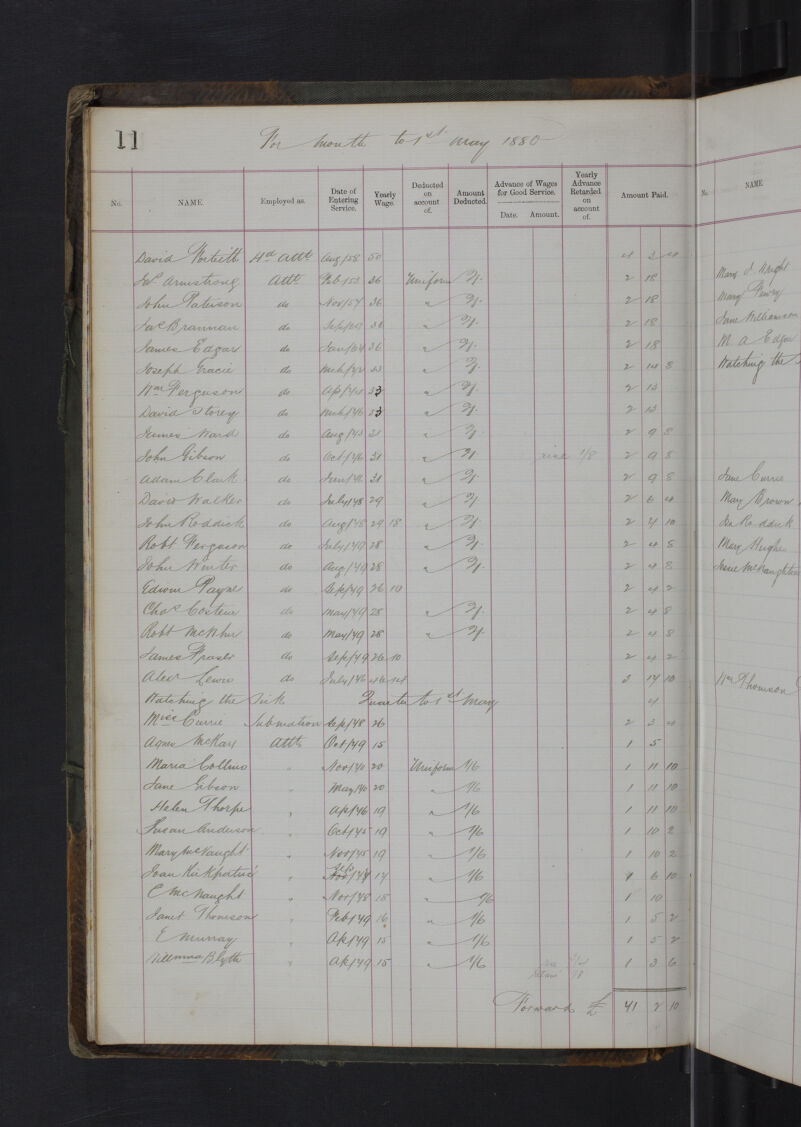 11
For month to 1st May 1880
No. NAME. Employed as. Date of Entering Service. Yearly Wage. Deducted on account of. Amount Deducted. Advance of Wages for Good Service. Date. Amount. Yearly Advance Retarded on account of. Amount Paid.
David Hd Attt Aug/58 50 4 3 4
Armstrong Attt Feb/53 36 Uniform 2/. 2 18
John Paterson do Nov/57 36 " 2/. 2 18
Jas Brannan do 36 " 2/. 2 18
James Edgar do Jan/64 36 " 2/. 2 18
Joseph Gracie do 33 " 2/. 2 14 8
Wm Ferguson do 33 " 2/. 2 13
David Storey do Mch/76 33 " 2/. 2 13
James Ward do Aug/73 31 " 2/. 2 9 8
John Gibson do Oct/76 31 " 2/. 1/8 2 9 8
Adam Clark do 31 " 2/. 2 9 8
David Walker do July/78 29 " 2/. 2 6 4
John Roddick do Aug/78 29 18 " 2/. 2 7 10
Robt Ferguson do July/79 28 " 2/. 2 4 8
John Winter do Aug/79 28 " 2/. 2 4 8
Edwin Payne do Sep/79 26 10 2 4 2
Chas Costeur do May/79 28 " 2/. 2 4 8
Robt do May/79 28 " 2/. 2 4 8
James Fraser do Sep/79 26 10 2 4 2
Alexr Lewis do July/76 46 14 3 17 10
Watching the Sick Quarter to 1st May 4
Miss Currie Submatron Sep/78 26 2 3 4
Agnes McKay Attt Oct/79 15 1 5
Maria Collins " Nov/70 20 Uniform 1/6 1 11 10
Jane Gibson " May/70 20 " 1/6 1 11 10
Helen Thorpe " Ap/76 19 " 1/6 1 11 10
Susan Anderson " Oct/75 19 " 1/6 1 10 2
Mary McNaught " Nov/75 19 " 1/6 1 10 2
Joan Kirkpatrick " Sep /78 17 " 1/6 1 6 10
C McNaught " Nov/78 15 " 1/6 1 10
Janet Thomson " Feb/79 16 " 1/6 1 5 2
E Murray " Ap/79 15 " 1/6 1 5 2
Blyth " Ap/79 15 " 1/6 1 3 6
Forward £ 41 2 10
No. NAME.
Mary J Wright
Mary
Jane Williamson
M A Edgar
Watching the
Jane Currie
Mary Brown
Roddick
Mary Hughes
Jessie McNaughton
Wm Thomson